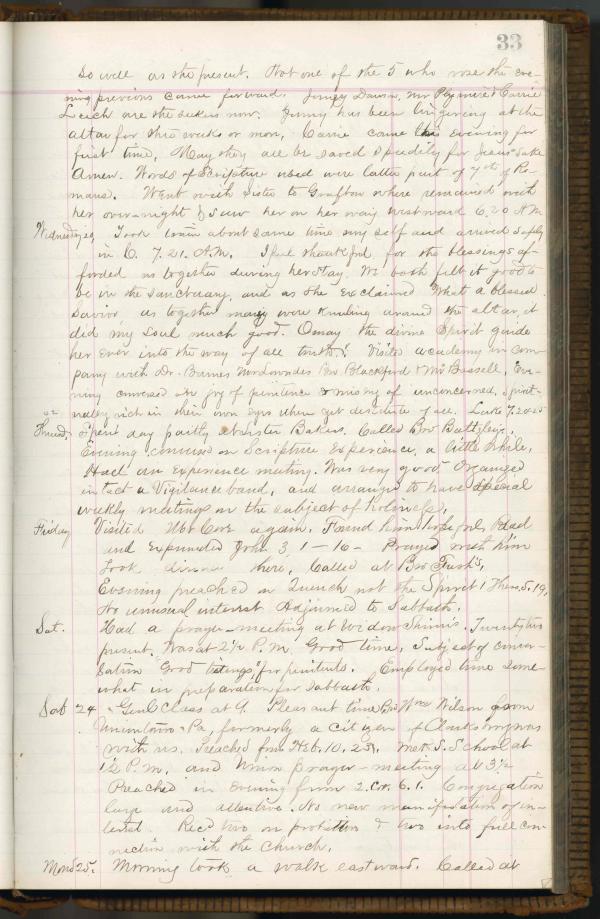 33
so well as the present. Not one of the 5 who rose the eve-
ning previous came forward. Jenny Dawson, Mr & Carrie
Leich are the seekers now. Jenny has been lingering at the
altar for three weeks or more, Carrie came this evening for
first time, May they all be saved speedily for Jesus' sake
Amen. Words of Scripture used were latter part of 7th of Ro-
mans. Went with sister to Grafton where remained with
her over-night & saw her on her way westward 6.20 A.M.
Wednesday 20 Took train about same time myself and arrived safely
in C. 7.21. A.M. I feel thankful for the blessings af-
forded us together during her stay. We both felt it good to
be in the sanctuary, and as she exclaimed What a blessed
Savior as together many were kneeling around the altar, it
did my soul much good. O may the divine Spirit guide
her ever into the way of all truth! Visited academy in com-
pany with Dr. Barnes Mr Lowndes Bro Blackford & Mr Bassell, Eve-
ning conversed on joy of penitence & misery of unconcerned, Spirit-
ually rich in their own eyes when yet destitute of all. Luke 7.20-25
Thursd, Spent day partly at sister Bakers. Called Bro Baltzley's.
Evening conversed on Scripture Experience, a little while,
Had an Experience meeting. Was very good. Organized
in fact a Vigilance band, and arranged to have special
weekly meetings on the subject of holiness,
Friday Visited Mr Core again. Found him hopeful, Read
and Expounded John 3, 1-16- Prayed with him
Took dinner there, Called at Bro
Evening preached on Quench not the Spirit 1 Thess. 5.19,
No unusual interest Adjourned to Sabbath.
Sat. Had a prayer-meeting at Widow Shinn's. Twenty two
present. Was at 2½ P.M. Good time, Subject of conver-
sation "Good tidings" for penitents. Employed time some-
what in preparation for Sabbath.
Sab 24 Genl Class at 9. Pleasant time Bro Wm Wilson from
Uniontown Pa, formerly a citizen of Clarksburg was
with us. Preached from Heb. 10, 23, Met S. School at
1½ P.M. and Union prayer-meeting at 3½
Preached in evening from 2. Cor. 6. 1. Congregation
large and attentive. No new manifestation of in-
terest. Rec'd two on probation & two into full con-
nection with the Church.
Mond 25. Morning took a walk eastward. Called at